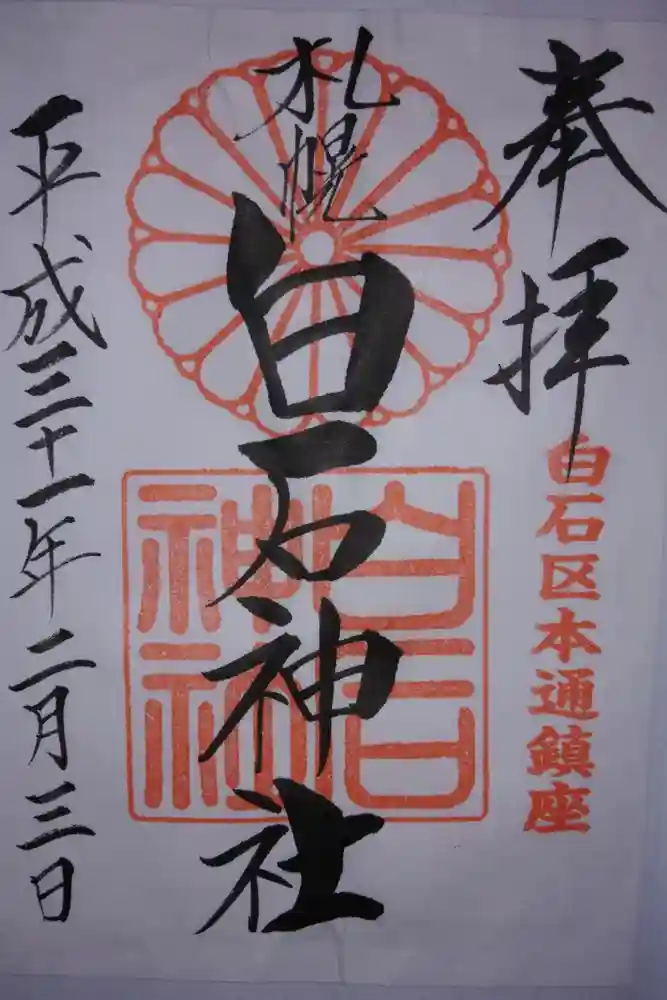 奉拝
白石区本通鎮座
札幌
白石神社
白石神社
平成三十一年二月三日